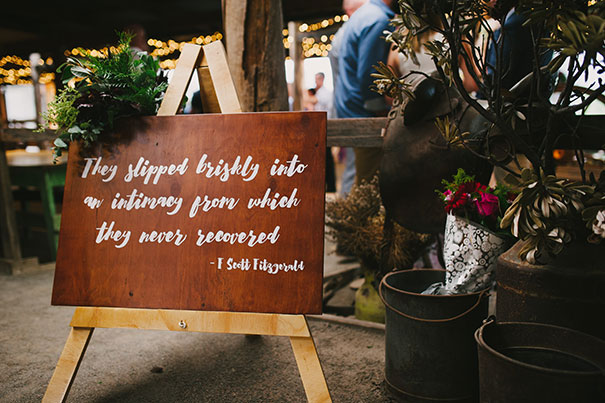 They slipped briskly into
an intimacy from which
they never recovered
- F Scott Fitzgerald